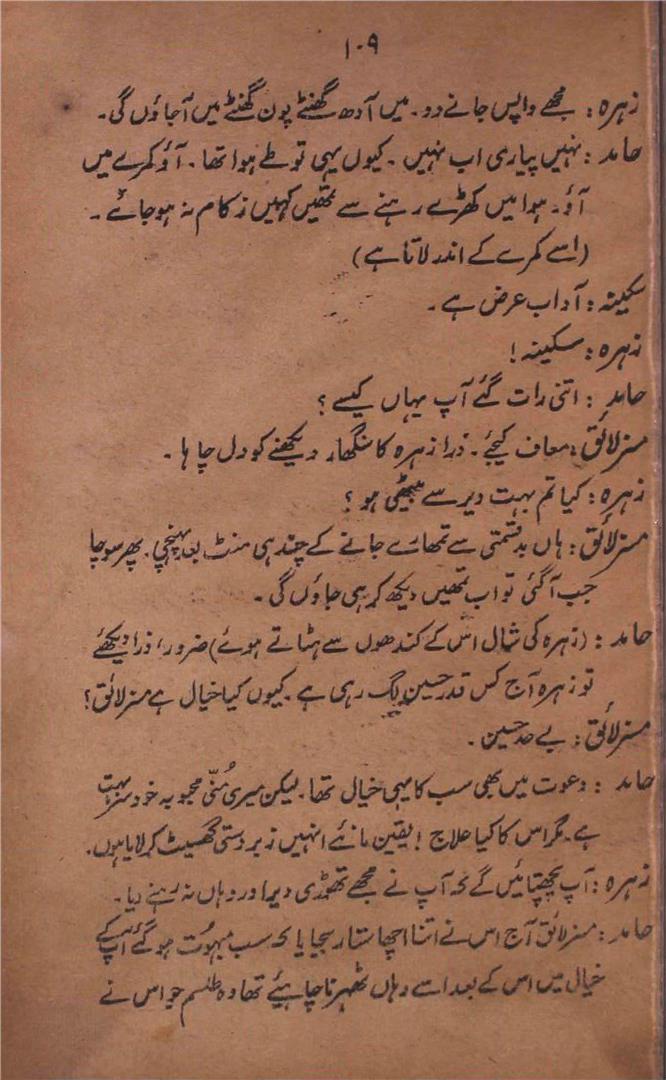 ۱۰۹
زہرہ : مجھے واپس جانے دو۔ میں آدھ گھنٹے پون گھنٹے میں آجاؤں گی۔
حامد : نہیں پیاری اب نہیں ۔ کیوں یہی تو طے ہوا تھا ۔ آؤ کمرے میں
آؤ۔ ہوا میں کھڑے رہنے سے تمھیں کہیں زکام نہ ہو جائے ۔
(اسے کمرے کے اندر لاتا ہے)
سکینہ : آداب عرض ہے ۔
زہرہ : سکینہ !
حامد : اتنی رات گئے آپ یہاں کیسے ؟
مسز لائق : معاف کیجئے ۔ ذرا زہرہ کا سنگھار دیکھنے کو دل چاہا ۔
زہرہ : کیا تم بہت دیر سے بیٹھی ہو ؟
مسز لائق : ہاں بدقسمتی سے تمھارے جانے کے چند ہی منٹ بعد پہنچی ۔ پھر سوچا
جب آگئی تو اب تمھیں دیکھ کر ہی جاؤں گی ۔
حامد : (زہرہ کی شال اس کے کندھوں سے ہٹاتے ہوئے) ضرور، ذرا دیکھئے
تو زہرہ آج کس قدر حسین لگ رہی ہے ۔ کیوں کیا خیال ہے مسز لائق ؟
مسز لائق : بے حد حسین ۔
حامد : دعوت میں بھی سب کا یہی خیال تھا ۔ لیکن میری مُنّی محبوبہ خود سر بہت
ہے ۔ مگر اس کا کیا علاج ! یقین مانئے انہیں زبردستی گھسیٹ کر لایا ہوں ۔
زہرہ : آپ پچھتائیں گے کہ آپ نے مجھے تھوڑی دیر اور وہاں نہ رہنے دیا ۔
حامد : مسز لائق آج اس نے اتنا اچھا ستار بجایا کہ سب مبہوت ہو گئے آپ کے
خیال میں اس کے بعد اسے وہاں ٹھہرنا چاہیئے تھا وہ طلسم جو اس نے